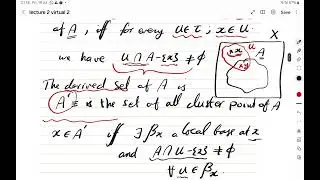 lecture 2 virtual 2
of A, iff for every u ∈ τ ; x ∈ u
we have u ∩ A - {x} ≠ φ
X
A
The derived set of A is
A' = is the set of all cluster point of A
x ∈ A' iff ∃ βx a local base at x
and A ∩ u - {x} ≠ φ
∀ u ∈ βx